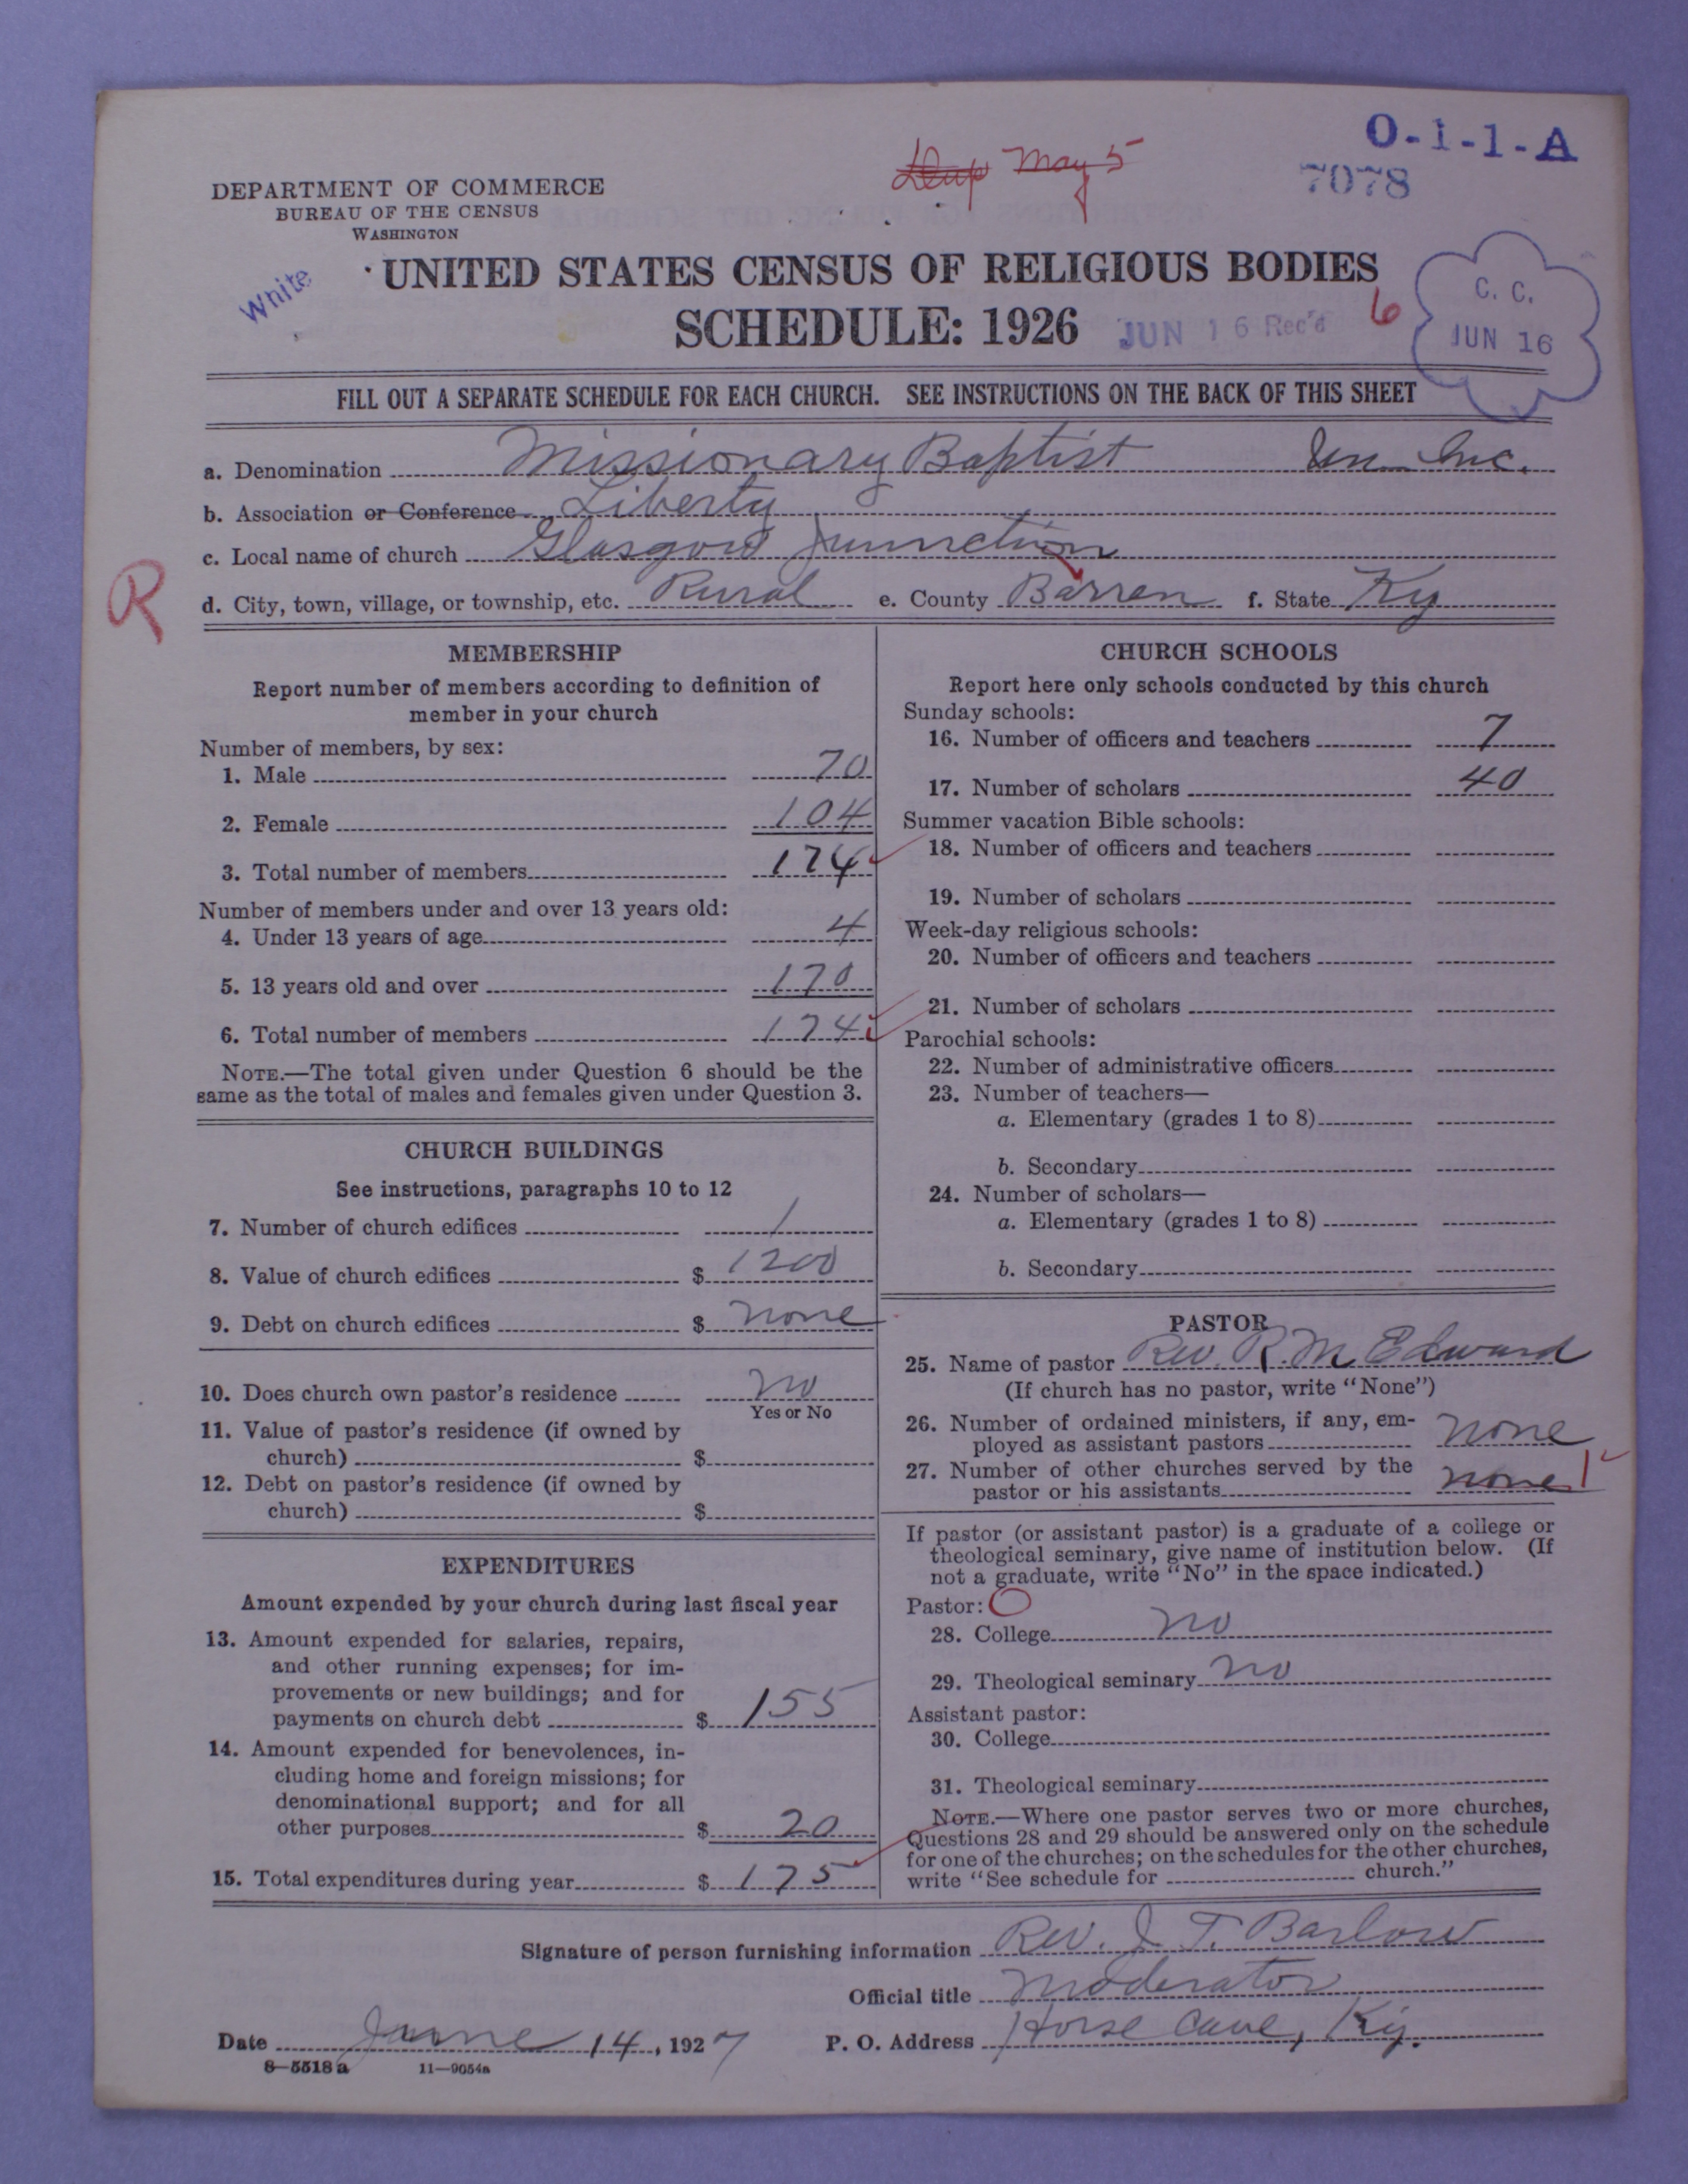 O-1-1-A
May 5
7078
DEPARTMENT OF COMMERCE
BUREAU OF THE CENSUS
WASHINGTON
White
UNITED STATES CENSUS OF RELIGIOUS BODIES
SCHEDULE: 1926
JUN 16 Rec'd
6
C. C.
JUN 16
FILL OUT A SEPARATE SCHEDULE FOR EACH CHURCH. SEE INSTRUCTIONS ON THE BACK OF THIS SHEET
a. Denomination Missionary Baptist Inc.
b. Association or Conference Liberty
c. Local name of church Glasgow Junnction
R
d. City, town, village, or township, etc. Rural e. County Barren f. State Ky
MEMBERSHIP
Report number of members according to definition of
member in your church
Number of members, by sex:
1. Male 70
2. Female 104
3. Total number of members 174
Number of members under and over 13 years old:
4. Under 13 years of age 4
5. 13 years old and over 170
6. Total number of members 174
NOTE.—The total given under Question 6 should be the
same as the total of males and females given under Question 3.
CHURCH BUILDINGS
See instructions, paragraphs 10 to 12
7. Number of church edifices 1
8. Value of church edifices $ 1200
9. Debt on church edifices $ none
10. Does church own pastor's residence no
Yes or No
11. Value of pastor's residence (if owned by
church) $
12. Debt on pastor's residence (if owned by
church) $
EXPENDITURES
Amount expended by your church during last fiscal year
13. Amount expended for salaries, repairs,
and other running expenses; for im-
provements or new buildings; and for
payments on church debt $ 155
14. Amount expended for benevolences, in-
cluding home and foreign missions; for
denominational support; and for all
other purposes $ 20
15. Total expenditures during year $ 175
CHURCH SCHOOLS
Report here only schools conducted by this church
Sunday schools:
16. Number of officers and teachers 7
17. Number of scholars 40
Summer vacation Bible schools:
18. Number of officers and teachers
19. Number of scholars
Week-day religious schools:
20. Number of officers and teachers
21. Number of scholars
Parochial schools:
22. Number of administrative officers
23. Number of teachers—
a. Elementary (grades 1 to 8)
b. Secondary
24. Number of scholars—
a. Elementary (grades 1 to 8)
b. Secondary
PASTOR
25. Name of pastor Rev. R. M Edward
(If church has no pastor, write "None")
26. Number of ordained ministers, if any, em-
ployed as assistant pastors none
27. Number of other churches served by the
pastor or his assistants none 1
If pastor (or assistant pastor) is a graduate of a college or
theological seminary, give name of institution below. (If
not a graduate, write "No" in the space indicated.)
Pastor: O
28. College no
29. Theological seminary no
Assistant pastor:
30. College
31. Theological seminary
NOTE.—Where one pastor serves two or more churches,
Questions 28 and 29 should be answered only on the schedule
for one of the churches; on the schedules for the other churches,
write "See schedule for church."
Signature of person furnishing information Rev. J. T. Barlow
Official title Moderator
Date June 14, 1927 P. O. Address Horse Cave, Ky.
8—5518 a 11—9054a